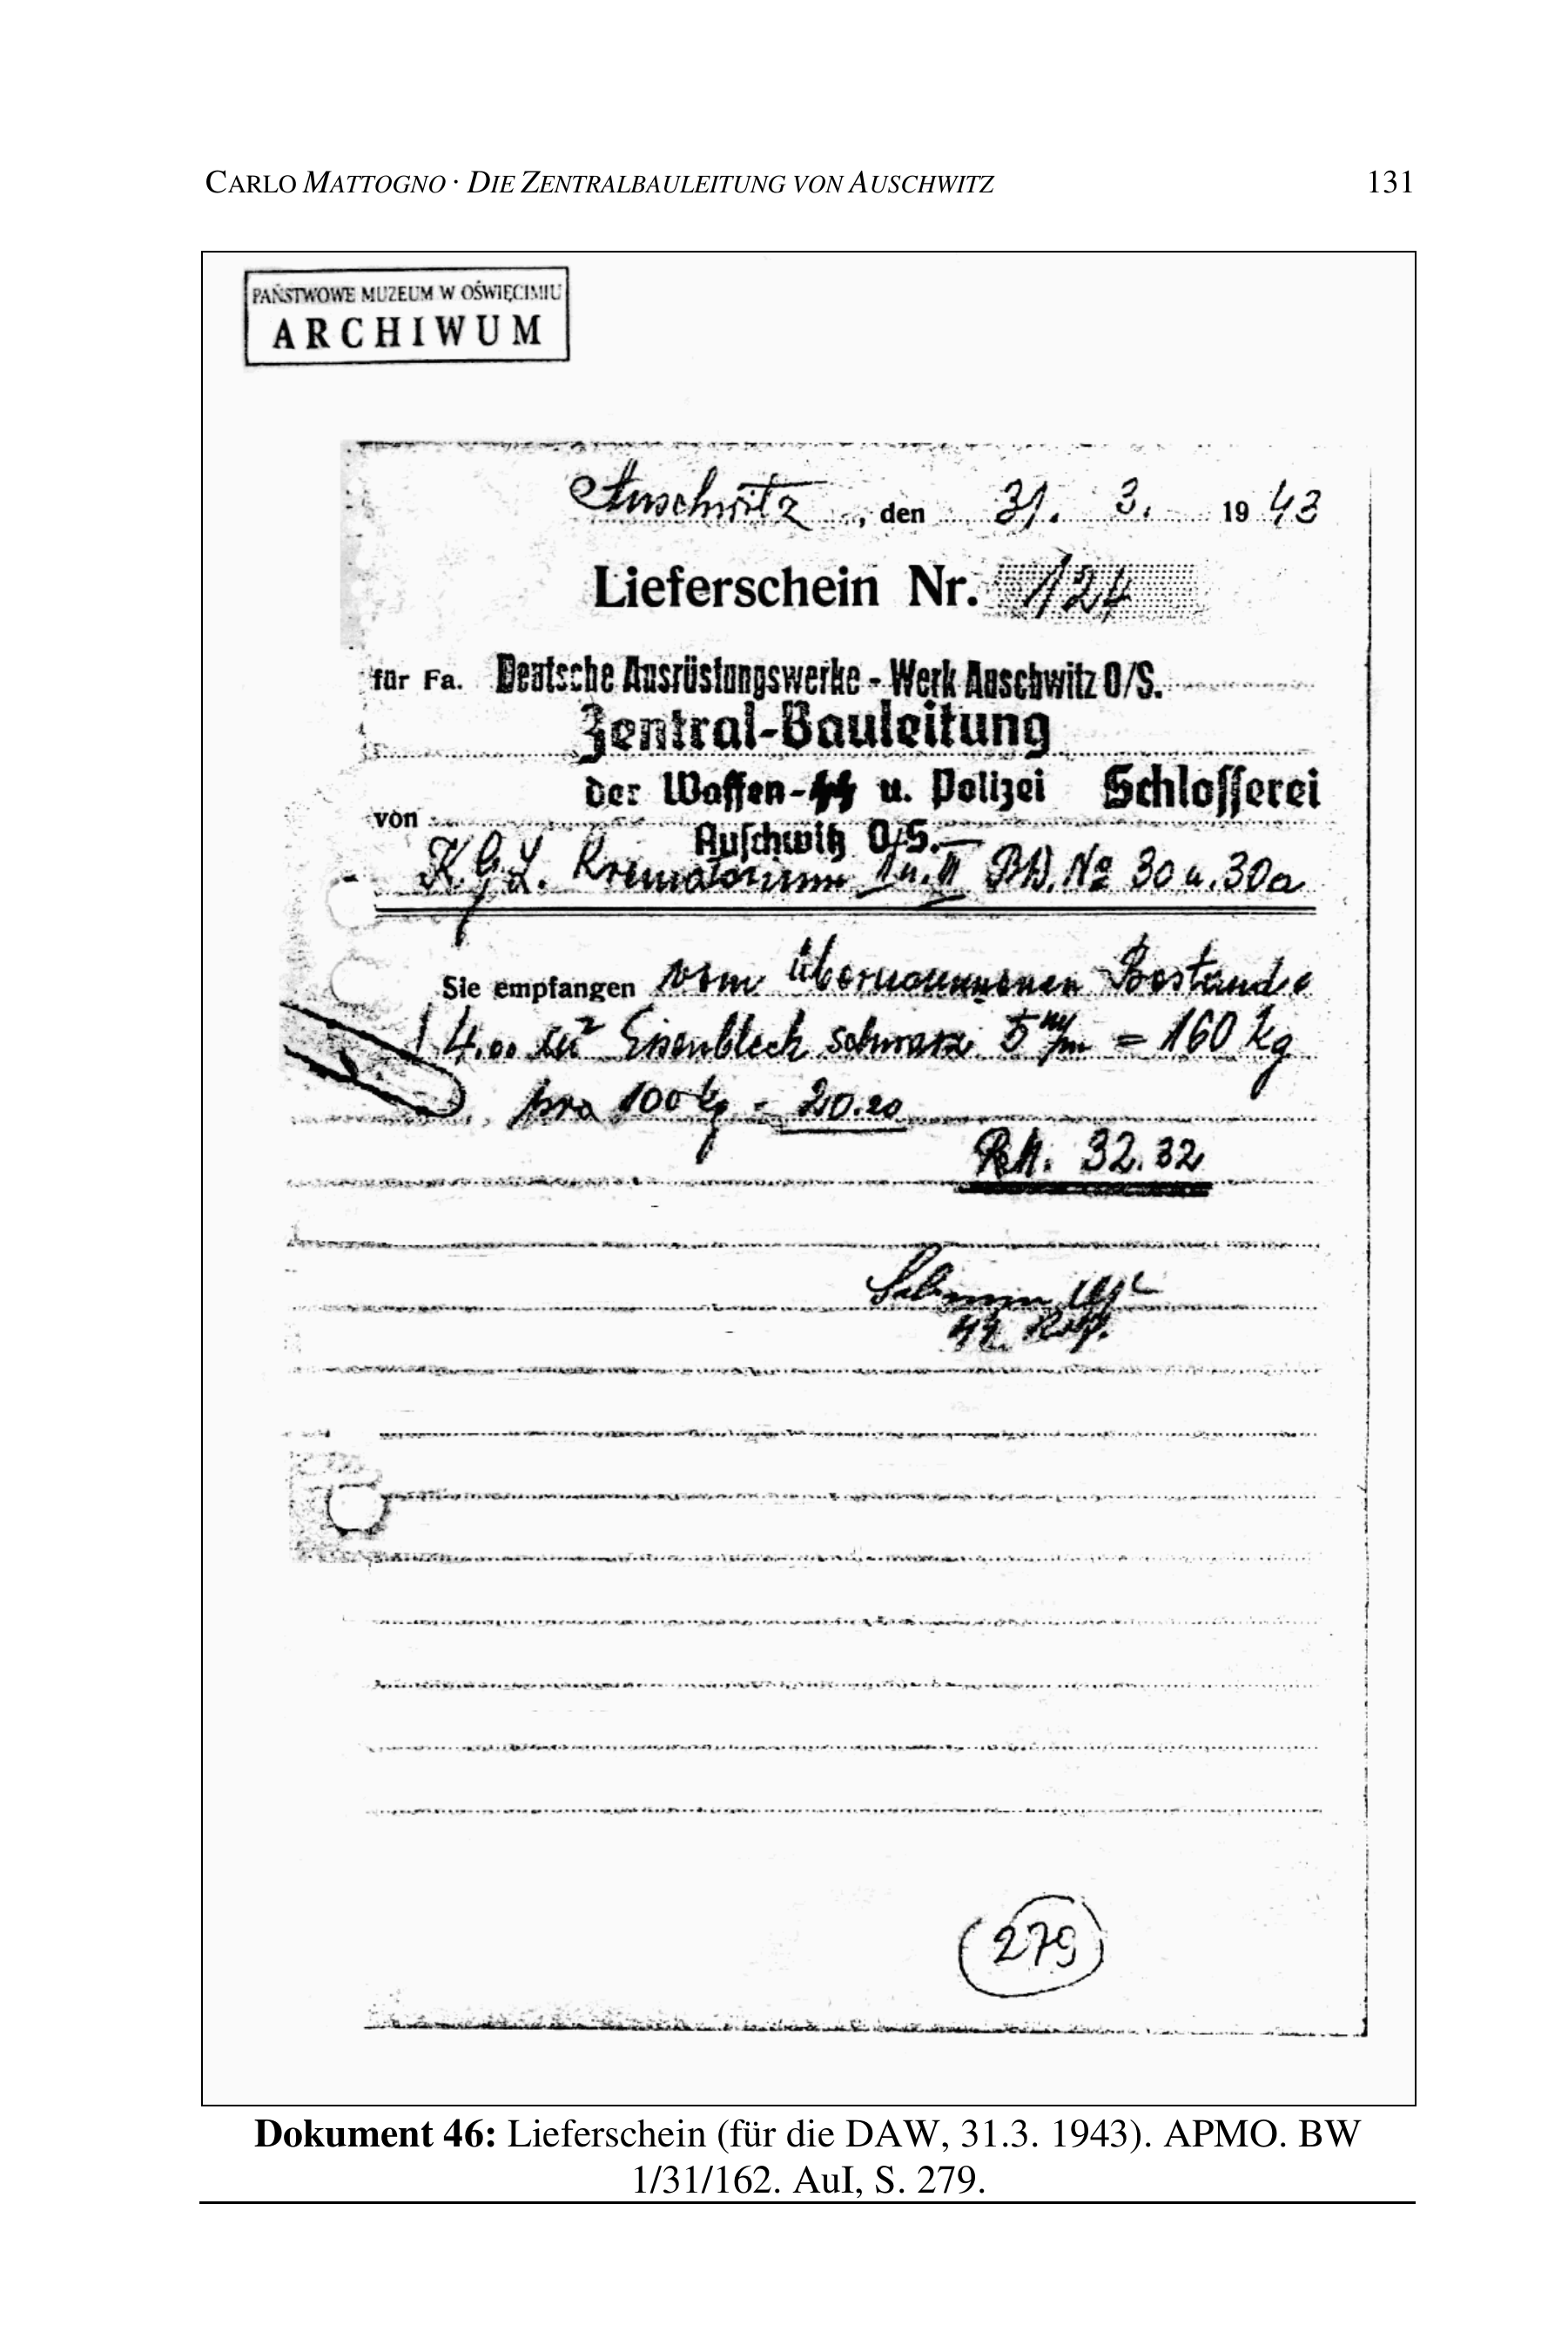 CARLO MATTOGNO · DIE ZENTRALBAULEITUNG VON AUSCHWITZ 131
PAŃSTWOWE MUZEUM W OŚWIĘCIMIU
ARCHIWUM
Auschwitz, den 31. 3. 1943
Lieferschein Nr. 124
für Fa. Deutsche Ausrüstungswerke - Werk Auschwitz O/S.
Zentral-Bauleitung
der Waffen-SS u. Polizei Schlosserei
von
Auschwitz O/S.
K.G.L. Krematorium II u. III BW. No 30 u. 30a
Sie empfangen vom übernommenen Bestande
4.00 m² Eisenblech schwarz 5 m/m = 160 kg
pro 100 kg = 20.20
RM. 32.32
279
Dokument 46: Lieferschein (für die DAW, 31.3. 1943). APMO. BW
1/31/162. AuI, S. 279.